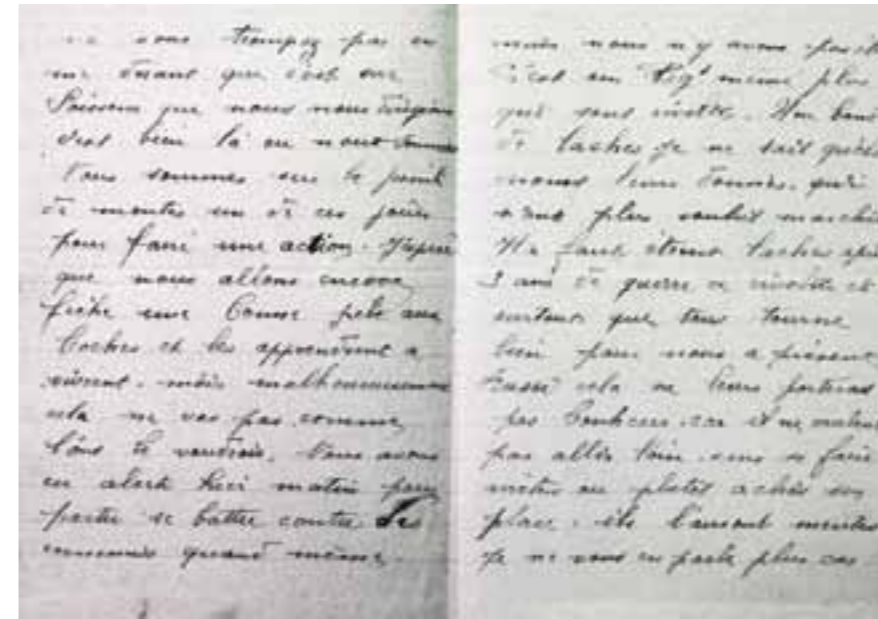 ne vous trompez pas en
me disant que c'est sur
Soissons que nous nous
c'est bien là ou nous sommes
Nous sommes sur le point
de monter un de ces jours
pour faire une action. J'espère
que nous allons encore
fiche une bonne pele aux
Boches et les apprendront a
vivrent. mais malheureusement
cela ne vas pas comme
l'ont le voudrais. Nous avons
en alerte hier matin pour
partir se battre contre des
ennemis quand même
mais nous n'y avons pas
C'est un Reg^t meme plus
qui sont . Une bande
de laches je ne sait quels
noms leur donner. qui
plus marcher
Il faut etre laches apres
3 ans de guerre ce et
surtout que tous tourne
bien pour nous a présent
Aussi cela ne leurs porteras
pas Bonheur car il ne
pas aller loin sans se faire
mettre au a
place. ils l'auront mérités
Je ne vous en parle plus car